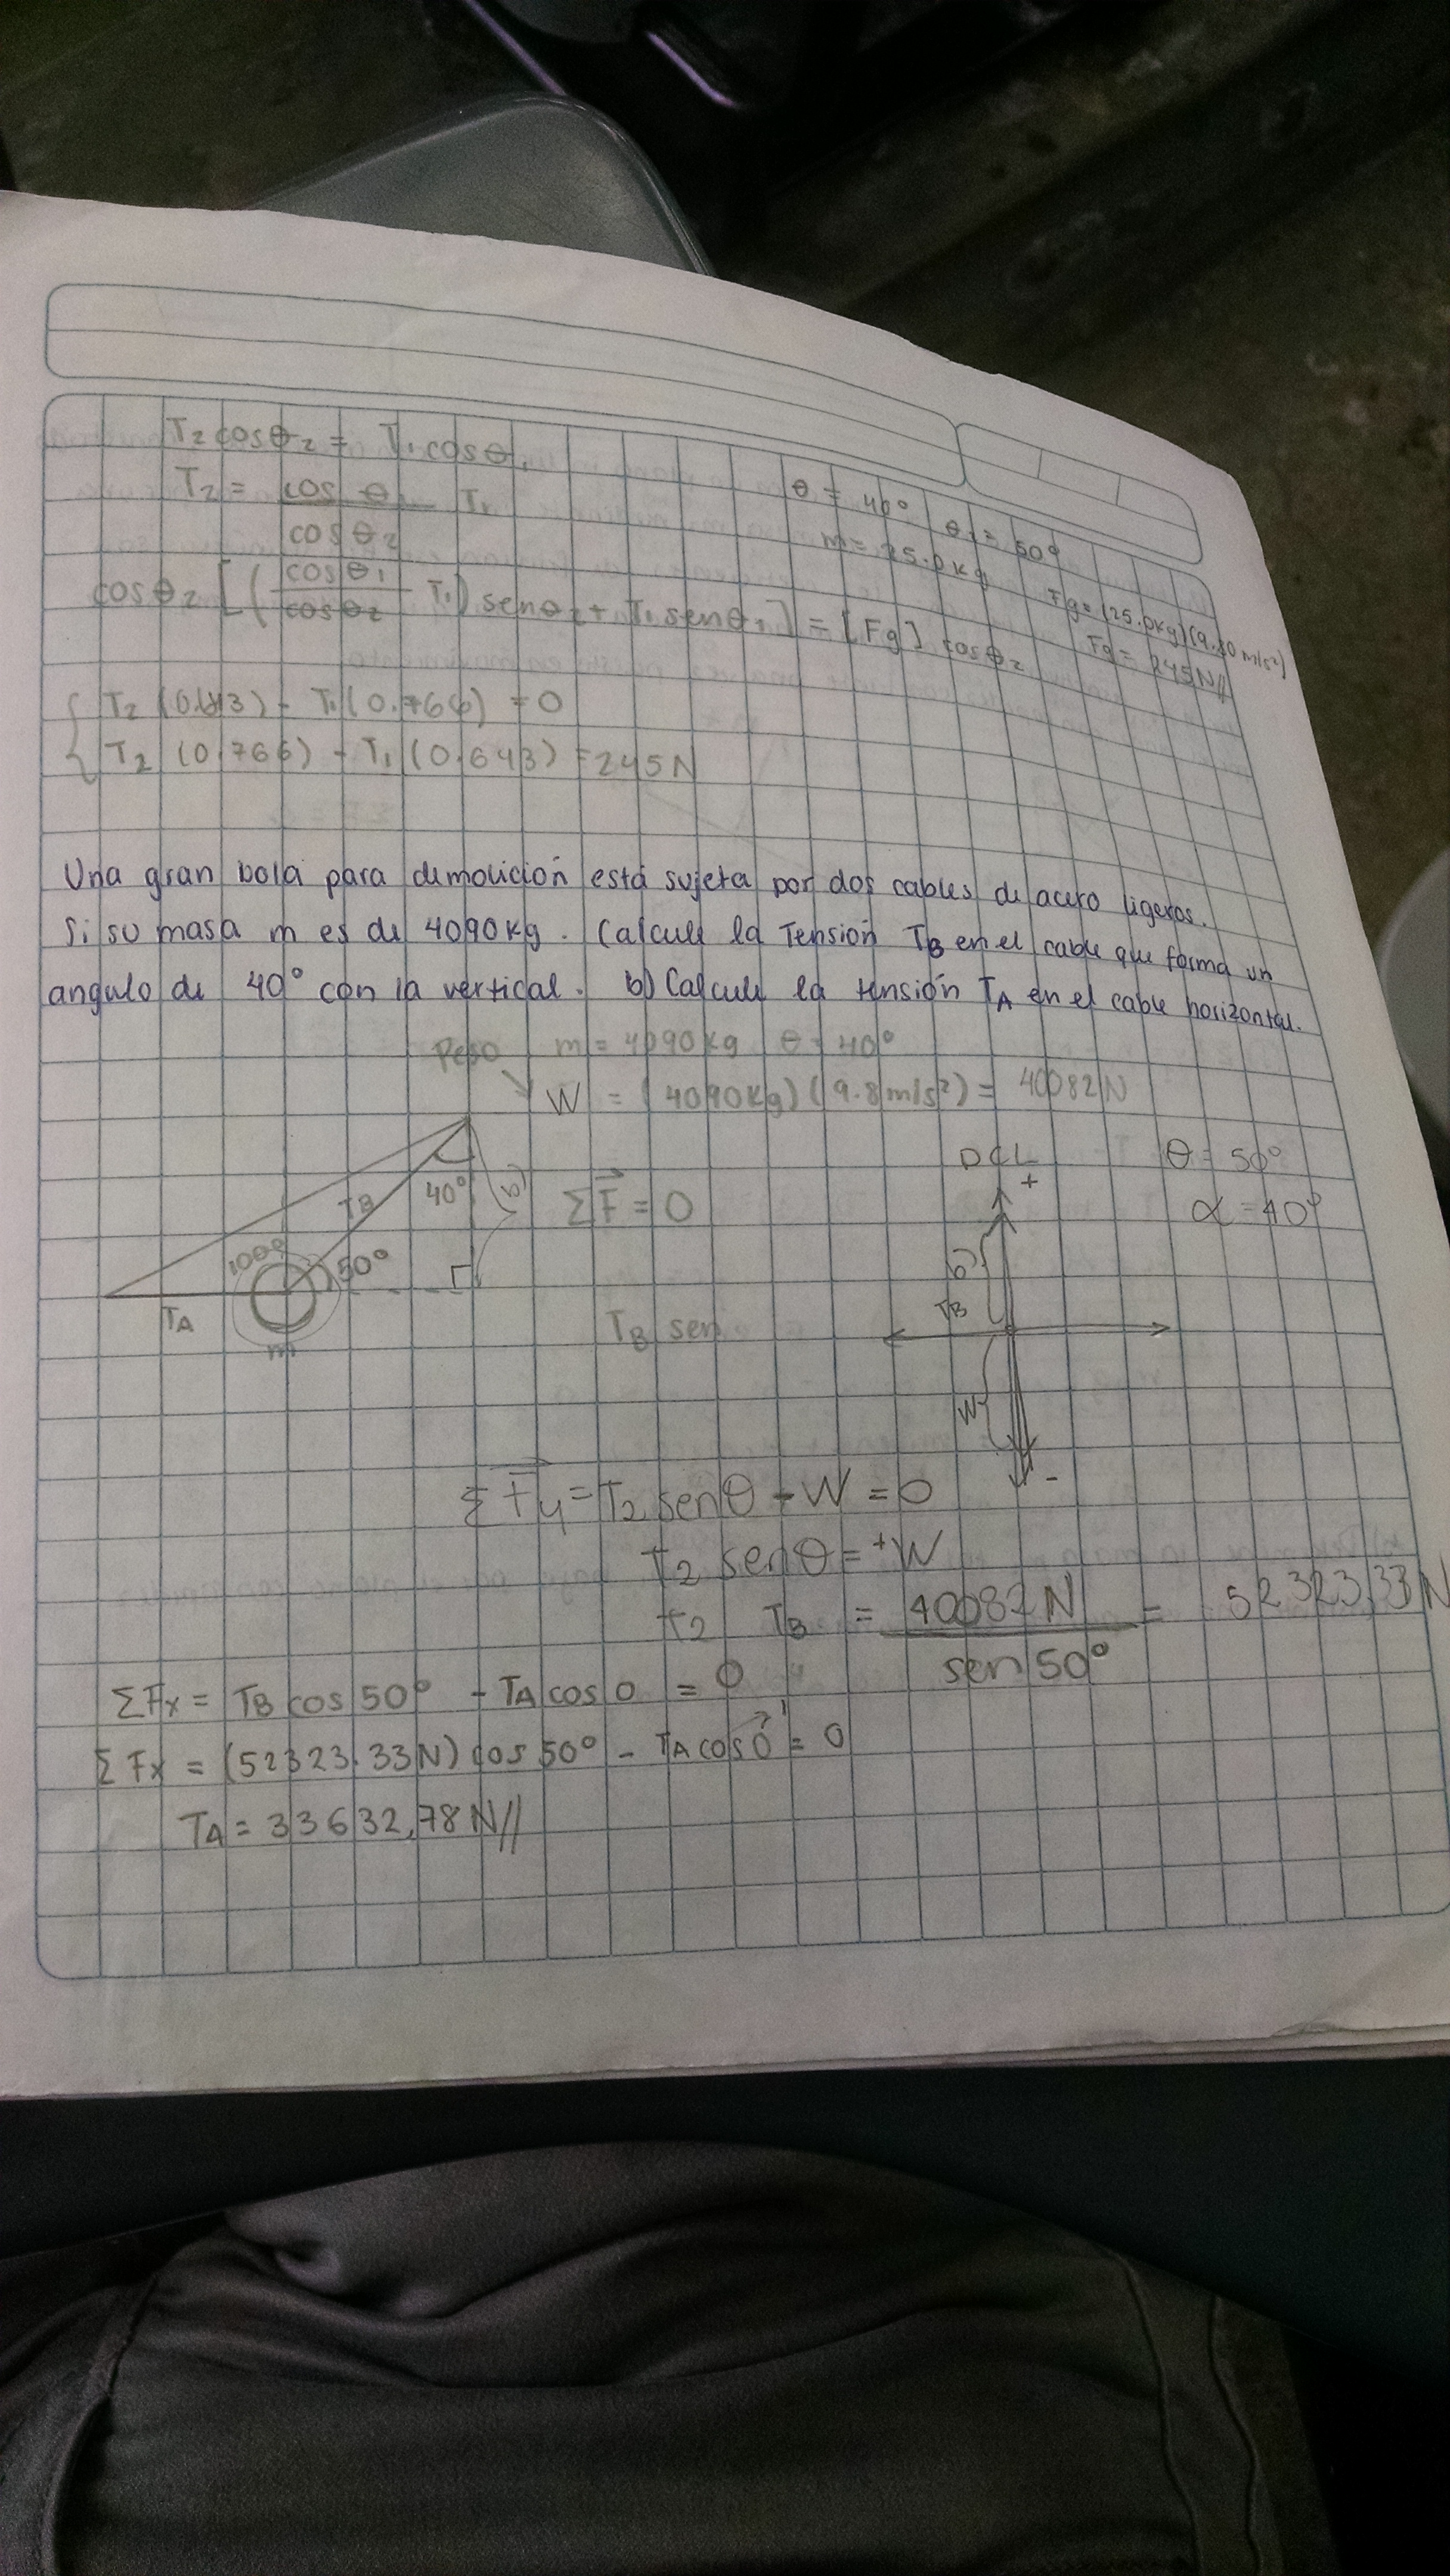 T₂ cos θ₂ = T₁ cos θ₁
T₂ = cos θ₁ / cos θ₂ T₁
θ = 40° θ₁ = 50°
m = 25.0 kg
Fg = (25.0kg)(9.80 m/s²)
Fg = 245N//
cos θ₂ [(cos θ₁ / cos θ₂ T₁) sen θ₂ + T₁ sen θ₁] = [Fg] cos θ₂
T₂ (0.643) - T₁ (0.766) = 0
T₂ (0.766) + T₁ (0.643) = 245N
Una gran bola para demolición está sujeta por dos cables de acero ligeros.
Si su masa m es de 4090kg. Calcule la Tensión TB en el cable que forma un
angulo de 40° con la vertical. b) Calcule la tensión TA en el cable horizontal.
Peso m = 4090 kg θ = 40°
W = (4090kg)(9.8 m/s²) = 40082N
TB 40°
50°
TA
m
ΣF = 0
TB sen
DCL
+
θ = 50°
α = 40°
TB
W
-
ΣFy = T₂ senθ - W = 0
T₂ senθ = +W
T₂ TB = 40082 N / sen 50° = 52323,33N
ΣFx = TB cos 50° - TA cos 0 = 0
ΣFx = (52323.33N) cos 50° - TA cos 0 1 = 0
TA = 33632,78 N//